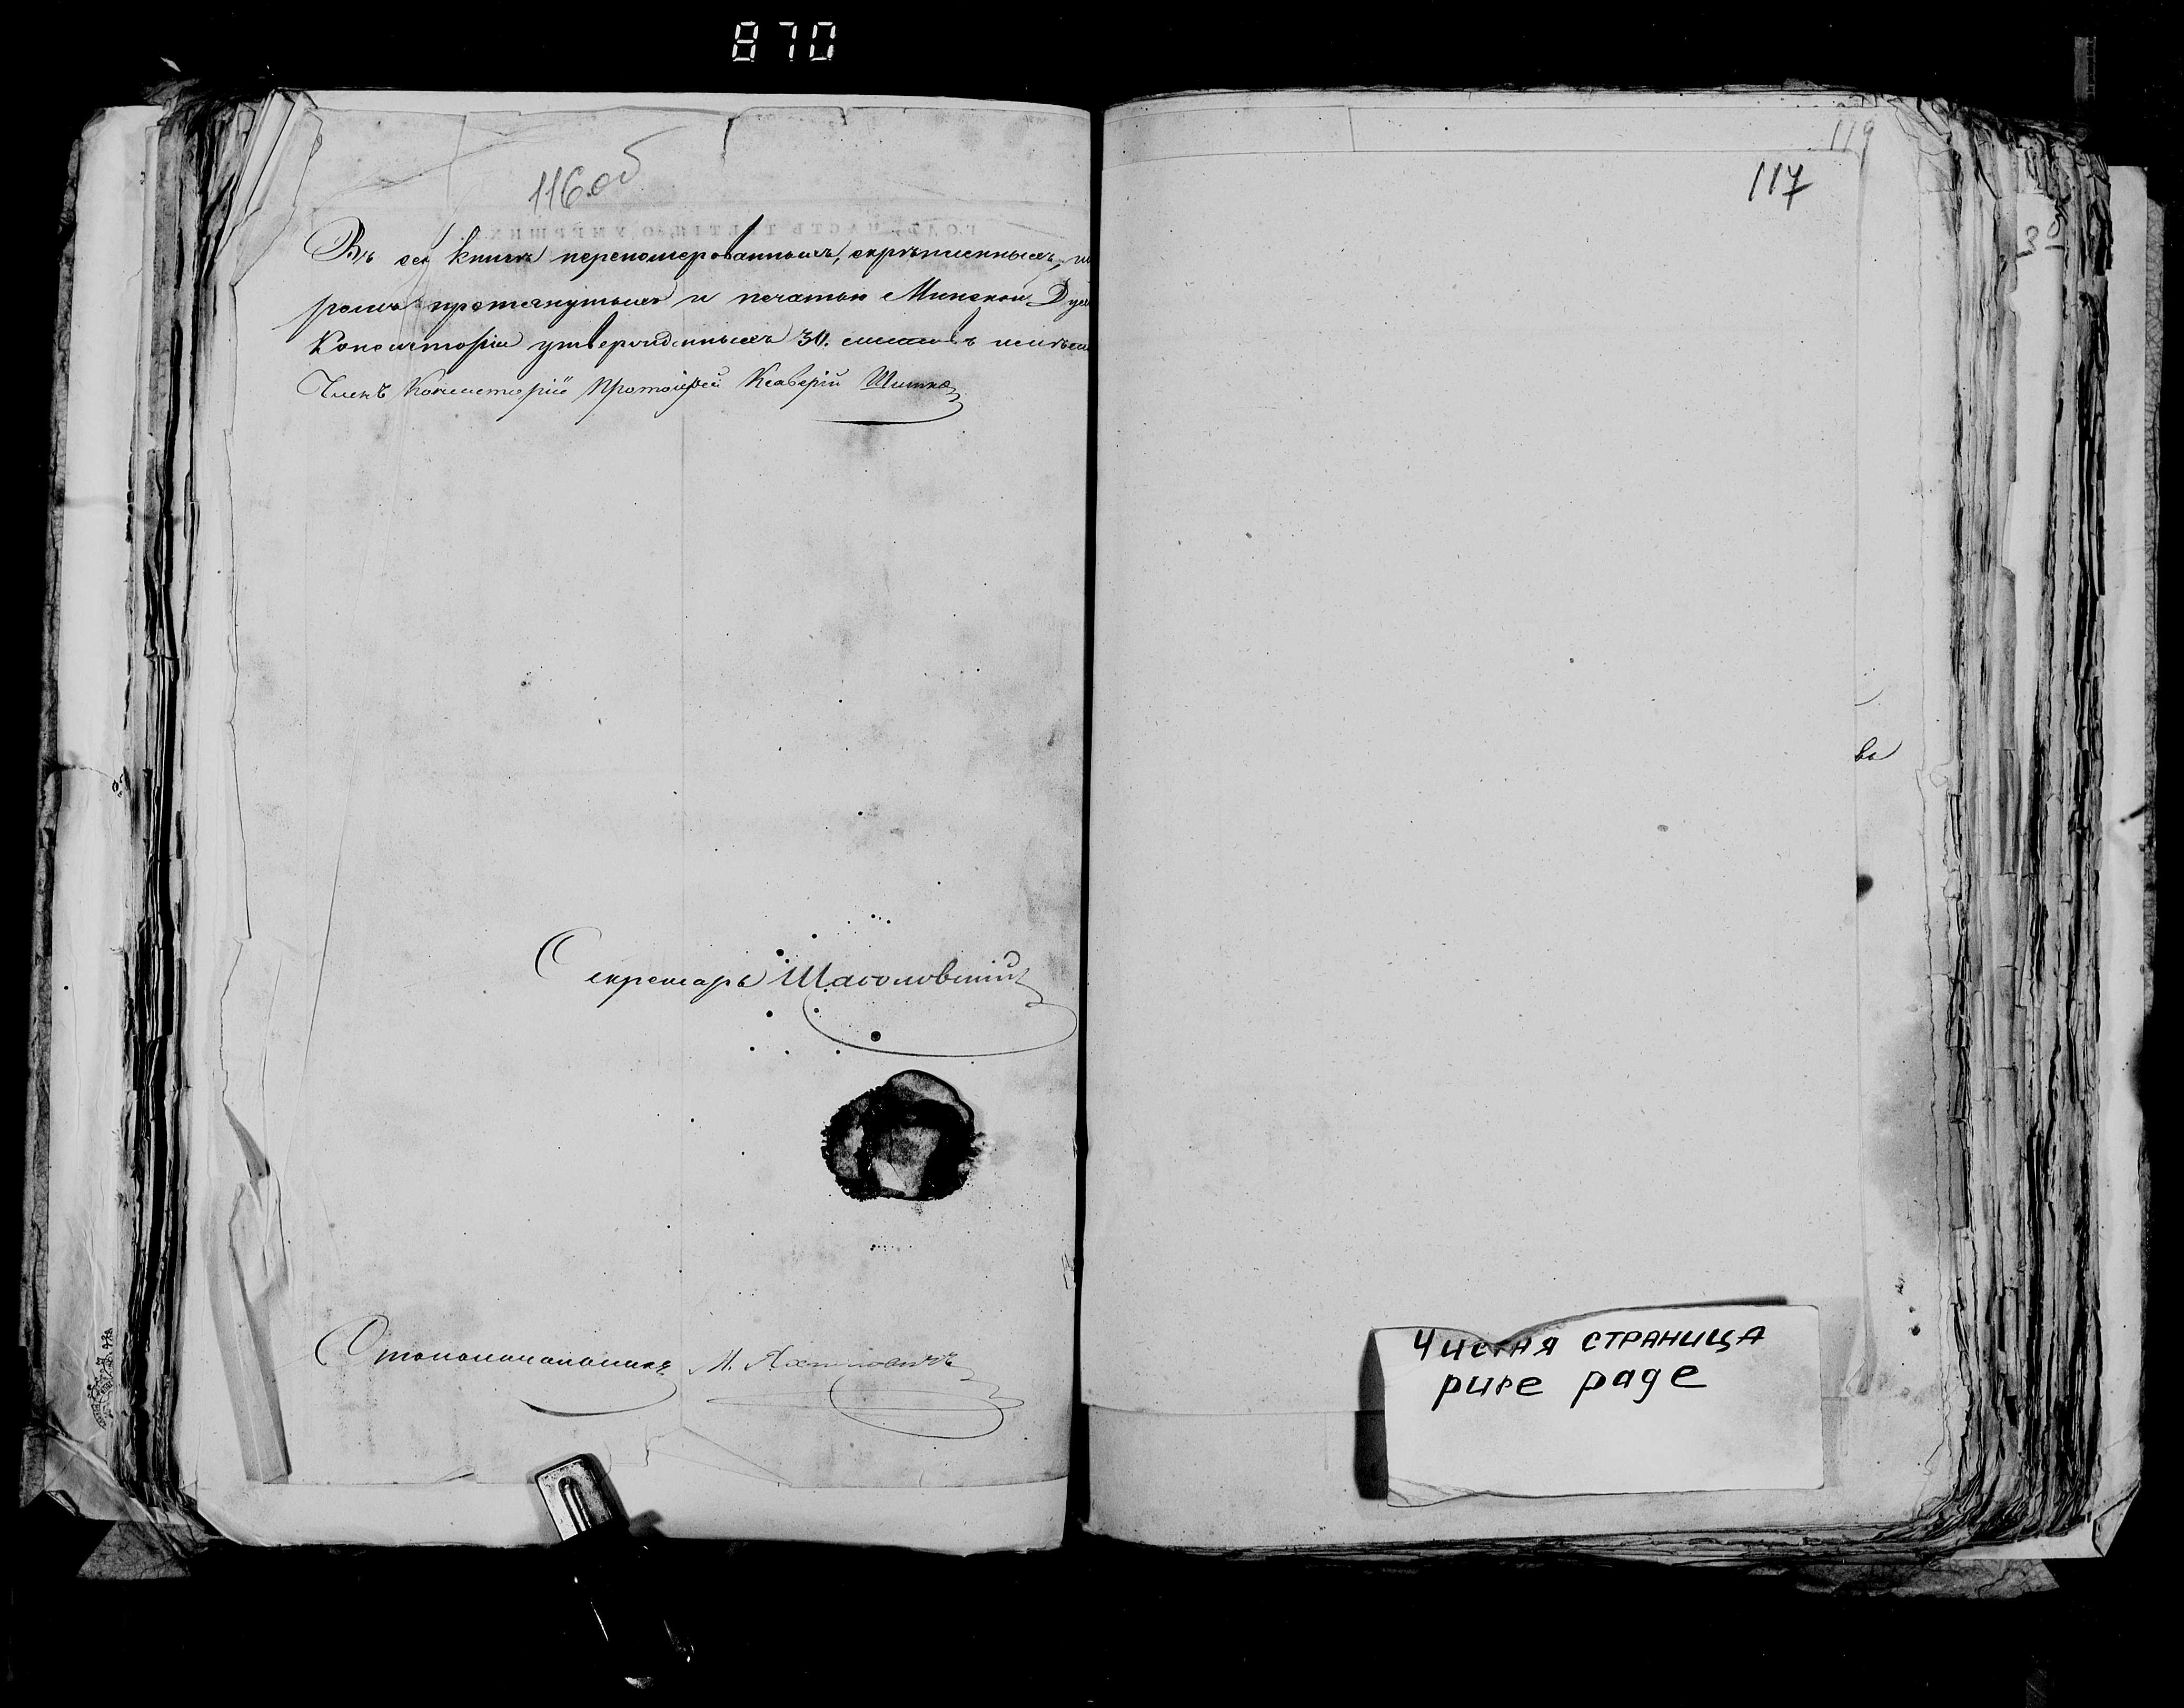 870
116 об
Въ сей книгѣ перенумерованныхъ, скрѣпленныхъ, шн
ромъ протянутыхъ и печатью Минской Духо
Консисторіи утвержденныхъ 30. листовъ
Членъ Консисторіи Протоіерей Ксаверій
Секретарь
Столоначальникъ М.
119
117
ва
Чистая страница
pure page